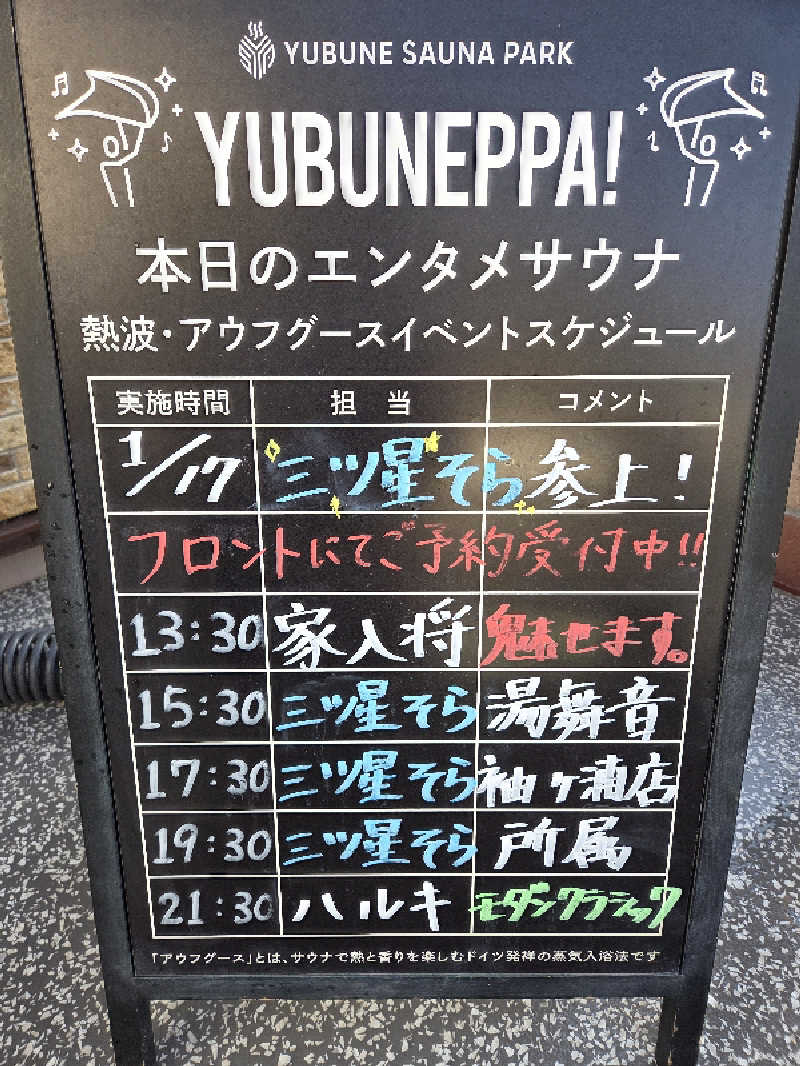 YUBUNE SAUNA PARK
YUBUNEPPA!
本日のエンタメサウナ
熱波・アウフグースイベントスケジュール
実施時間 担当 コメント
1/17 三ツ星そら参上!
フロントにてご予約受付中!!
13:30 家入将 魅せます。
15:30 三ツ星そら 湯舞音
17:30 三ツ星そら 袖ヶ浦店
19:30 三ツ星そら 所属
21:30 ハルキ モダンクラシック
「アウフグース」とは、サウナで熱と香りを楽しむドイツ発祥の蒸気入浴法です